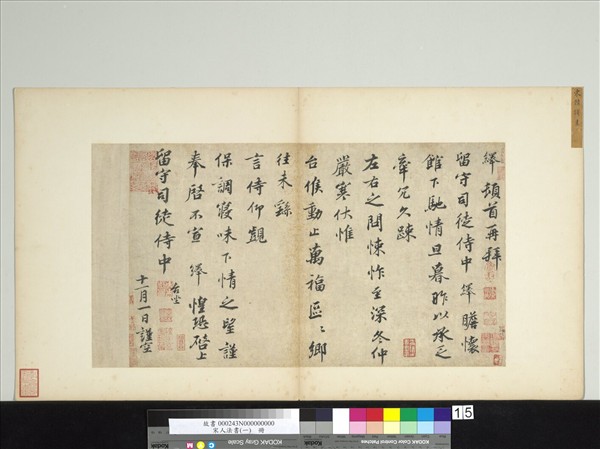 絳 頓首再拜
留守司徒侍中 絳 瞻懷
館下馳情旦暮昨以承乏
宰冗久疎
左右之問悚怍至深冬仲
嚴寒伏惟
台候動止萬福區〻鄉
往未繇
言侍仰覬
保調寢味下情之望謹
奉啓不宣 絳 惶恐啓上
留守司徒侍中
台坐
十一月一日謹空
15
故書 000243N000000000
宋人法書(一) 冊
KODAK Color Control Patches
KODAK Gray Scale